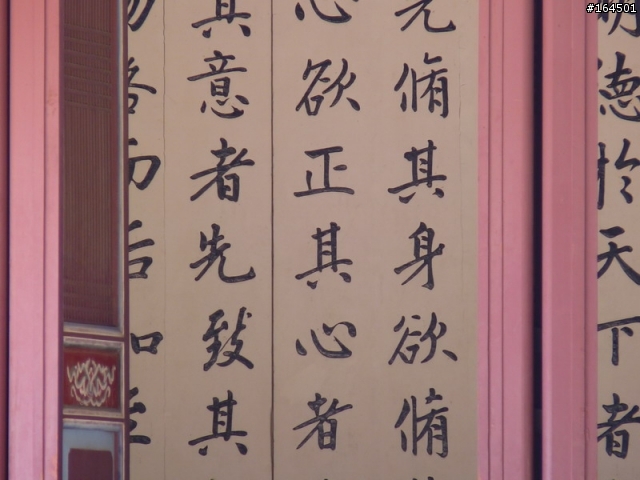 #164501
明德於天下者
先脩其身欲脩
心欲正其心者
其意者先致其
物格而后知至